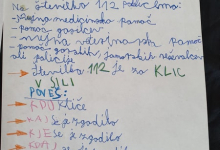 Na številko 112 pokličemo:
- nujna medicinska pomoč
- pomoč gasilcev
- nujna veterinarska pomoč
- pomoč gorskih, jamarskih reševalcev
ali policije
številka 112 je za KLIC
V SILI
POVEŠ:
KDO kliče
KAJ se je zgodilo
KJE se je zgodilo
KDAJ se je zgodilo